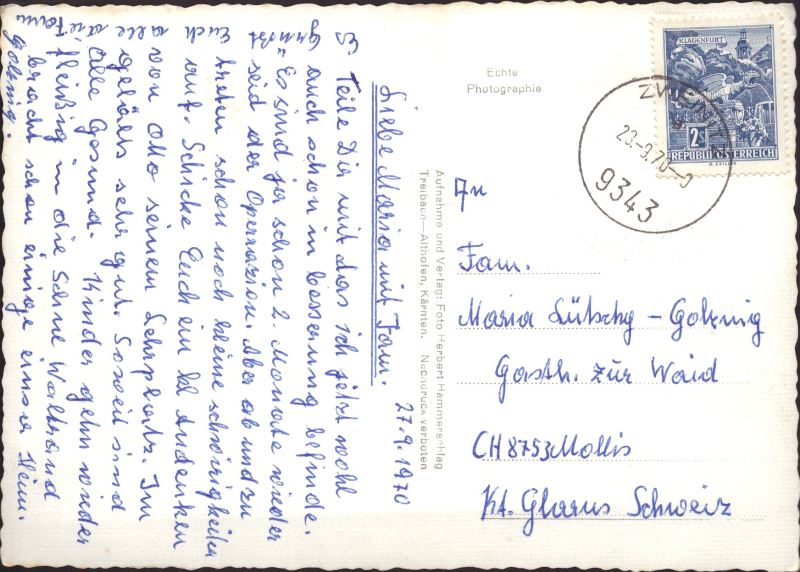 27.9.1970
Liebe Maria mit Fam.
Teile Dir mit das ich jetzt wohl
auch schon in besserung befinde.
Es sind ja schon 2. Monate wieder
seit der Operrazion. Aber ab und zu
treten schon noch kleine schwirigkeiten
auf. Schicke Euch ein kl Andenken
von Otto seinem Lehrplatz. Im
gefällts sehr gut. Soweit sind
alle Gesund. Kinder gehn wieder
fleißig in die Schule Waltraud
bracht schon einige einser Heim.
Es
Grüsst
Euch
alle die Fam
Golznig.
Echte
Photographie
Aufnahme und Verlag: Foto Herbert Hammerschlag
Treibach—Althofen, Kärnten. Nachdruck verboten
KLAGENFURT
2S
REPUBLIK ÖSTERREICH
9343
An
Fam.
Maria Lütschg - Golznig
Gasth. zür Waid
CH 8753 Mollis
Kt. Glarus Schweiz